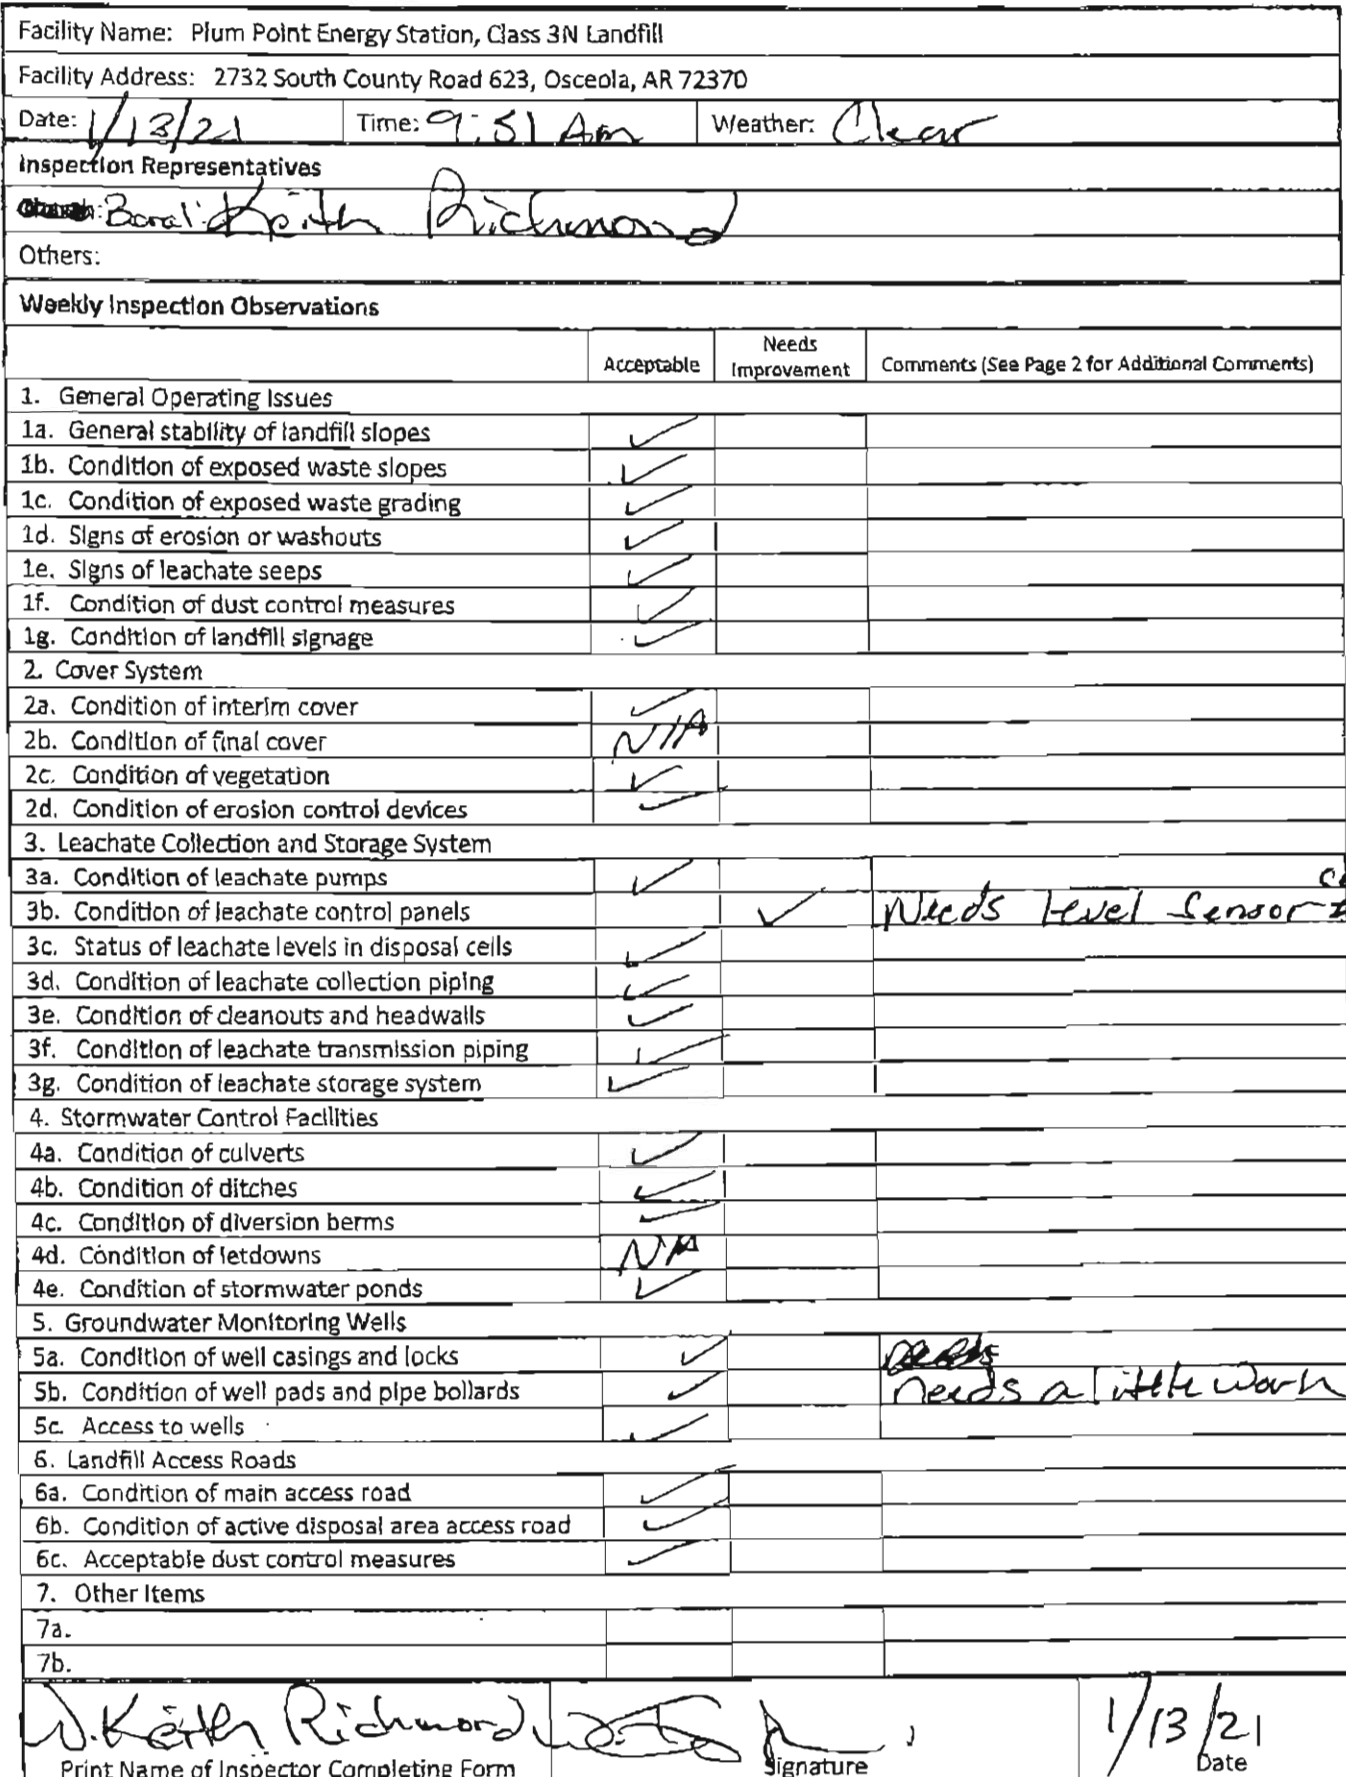 Facility Name: Plum Point Energy Station, Class 3N Landfill
Facility Address: 2732 South County Road 623, Osceola, AR 72370
Date: 1/13/21 Time: 9:51 Am Weather: Clear
Inspection Representatives
Boral: Keith Richmond
Others:
Weekly Inspection Observations
Acceptable Needs Improvement Comments (See Page 2 for Additional Comments)
1. General Operating Issues
1a. General stability of landfill slopes ✓
1b. Condition of exposed waste slopes ✓
1c. Condition of exposed waste grading ✓
1d. Signs of erosion or washouts ✓
1e. Signs of leachate seeps ✓
1f. Condition of dust control measures ✓
1g. Condition of landfill signage ✓
2. Cover System
2a. Condition of interim cover ✓
2b. Condition of final cover N/A
2c. Condition of vegetation ✓
2d. Condition of erosion control devices ✓
3. Leachate Collection and Storage System
3a. Condition of leachate pumps ✓
3b. Condition of leachate control panels ✓ Needs level Sensor
3c. Status of leachate levels in disposal cells ✓
3d. Condition of leachate collection piping ✓
3e. Condition of cleanouts and headwalls ✓
3f. Condition of leachate transmission piping ✓
3g. Condition of leachate storage system ✓
4. Stormwater Control Facilities
4a. Condition of culverts ✓
4b. Condition of ditches ✓
4c. Condition of diversion berms ✓
4d. Condition of letdowns N/A
4e. Condition of stormwater ponds ✓
5. Groundwater Monitoring Wells
5a. Condition of well casings and locks ✓
5b. Condition of well pads and pipe bollards ✓ needs a little work
5c. Access to wells ✓
6. Landfill Access Roads
6a. Condition of main access road ✓
6b. Condition of active disposal area access road ✓
6c. Acceptable dust control measures ✓
7. Other Items
7a.
7b.
W. Keith Richmond 1/13/21
Print Name of Inspector Completing Form Signature Date